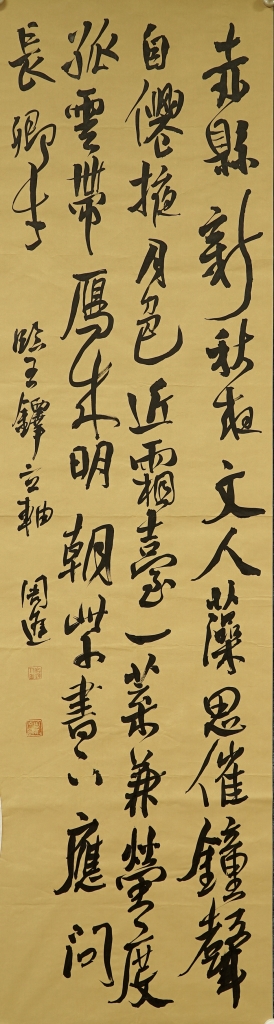 赤縣新秋夜文人藻思催鐘聲
自僊掖月色近霜臺一葉兼螢度
孤雲帶鴈来明朝紫書下應問
長卿才
臨王鐸立軸 周進